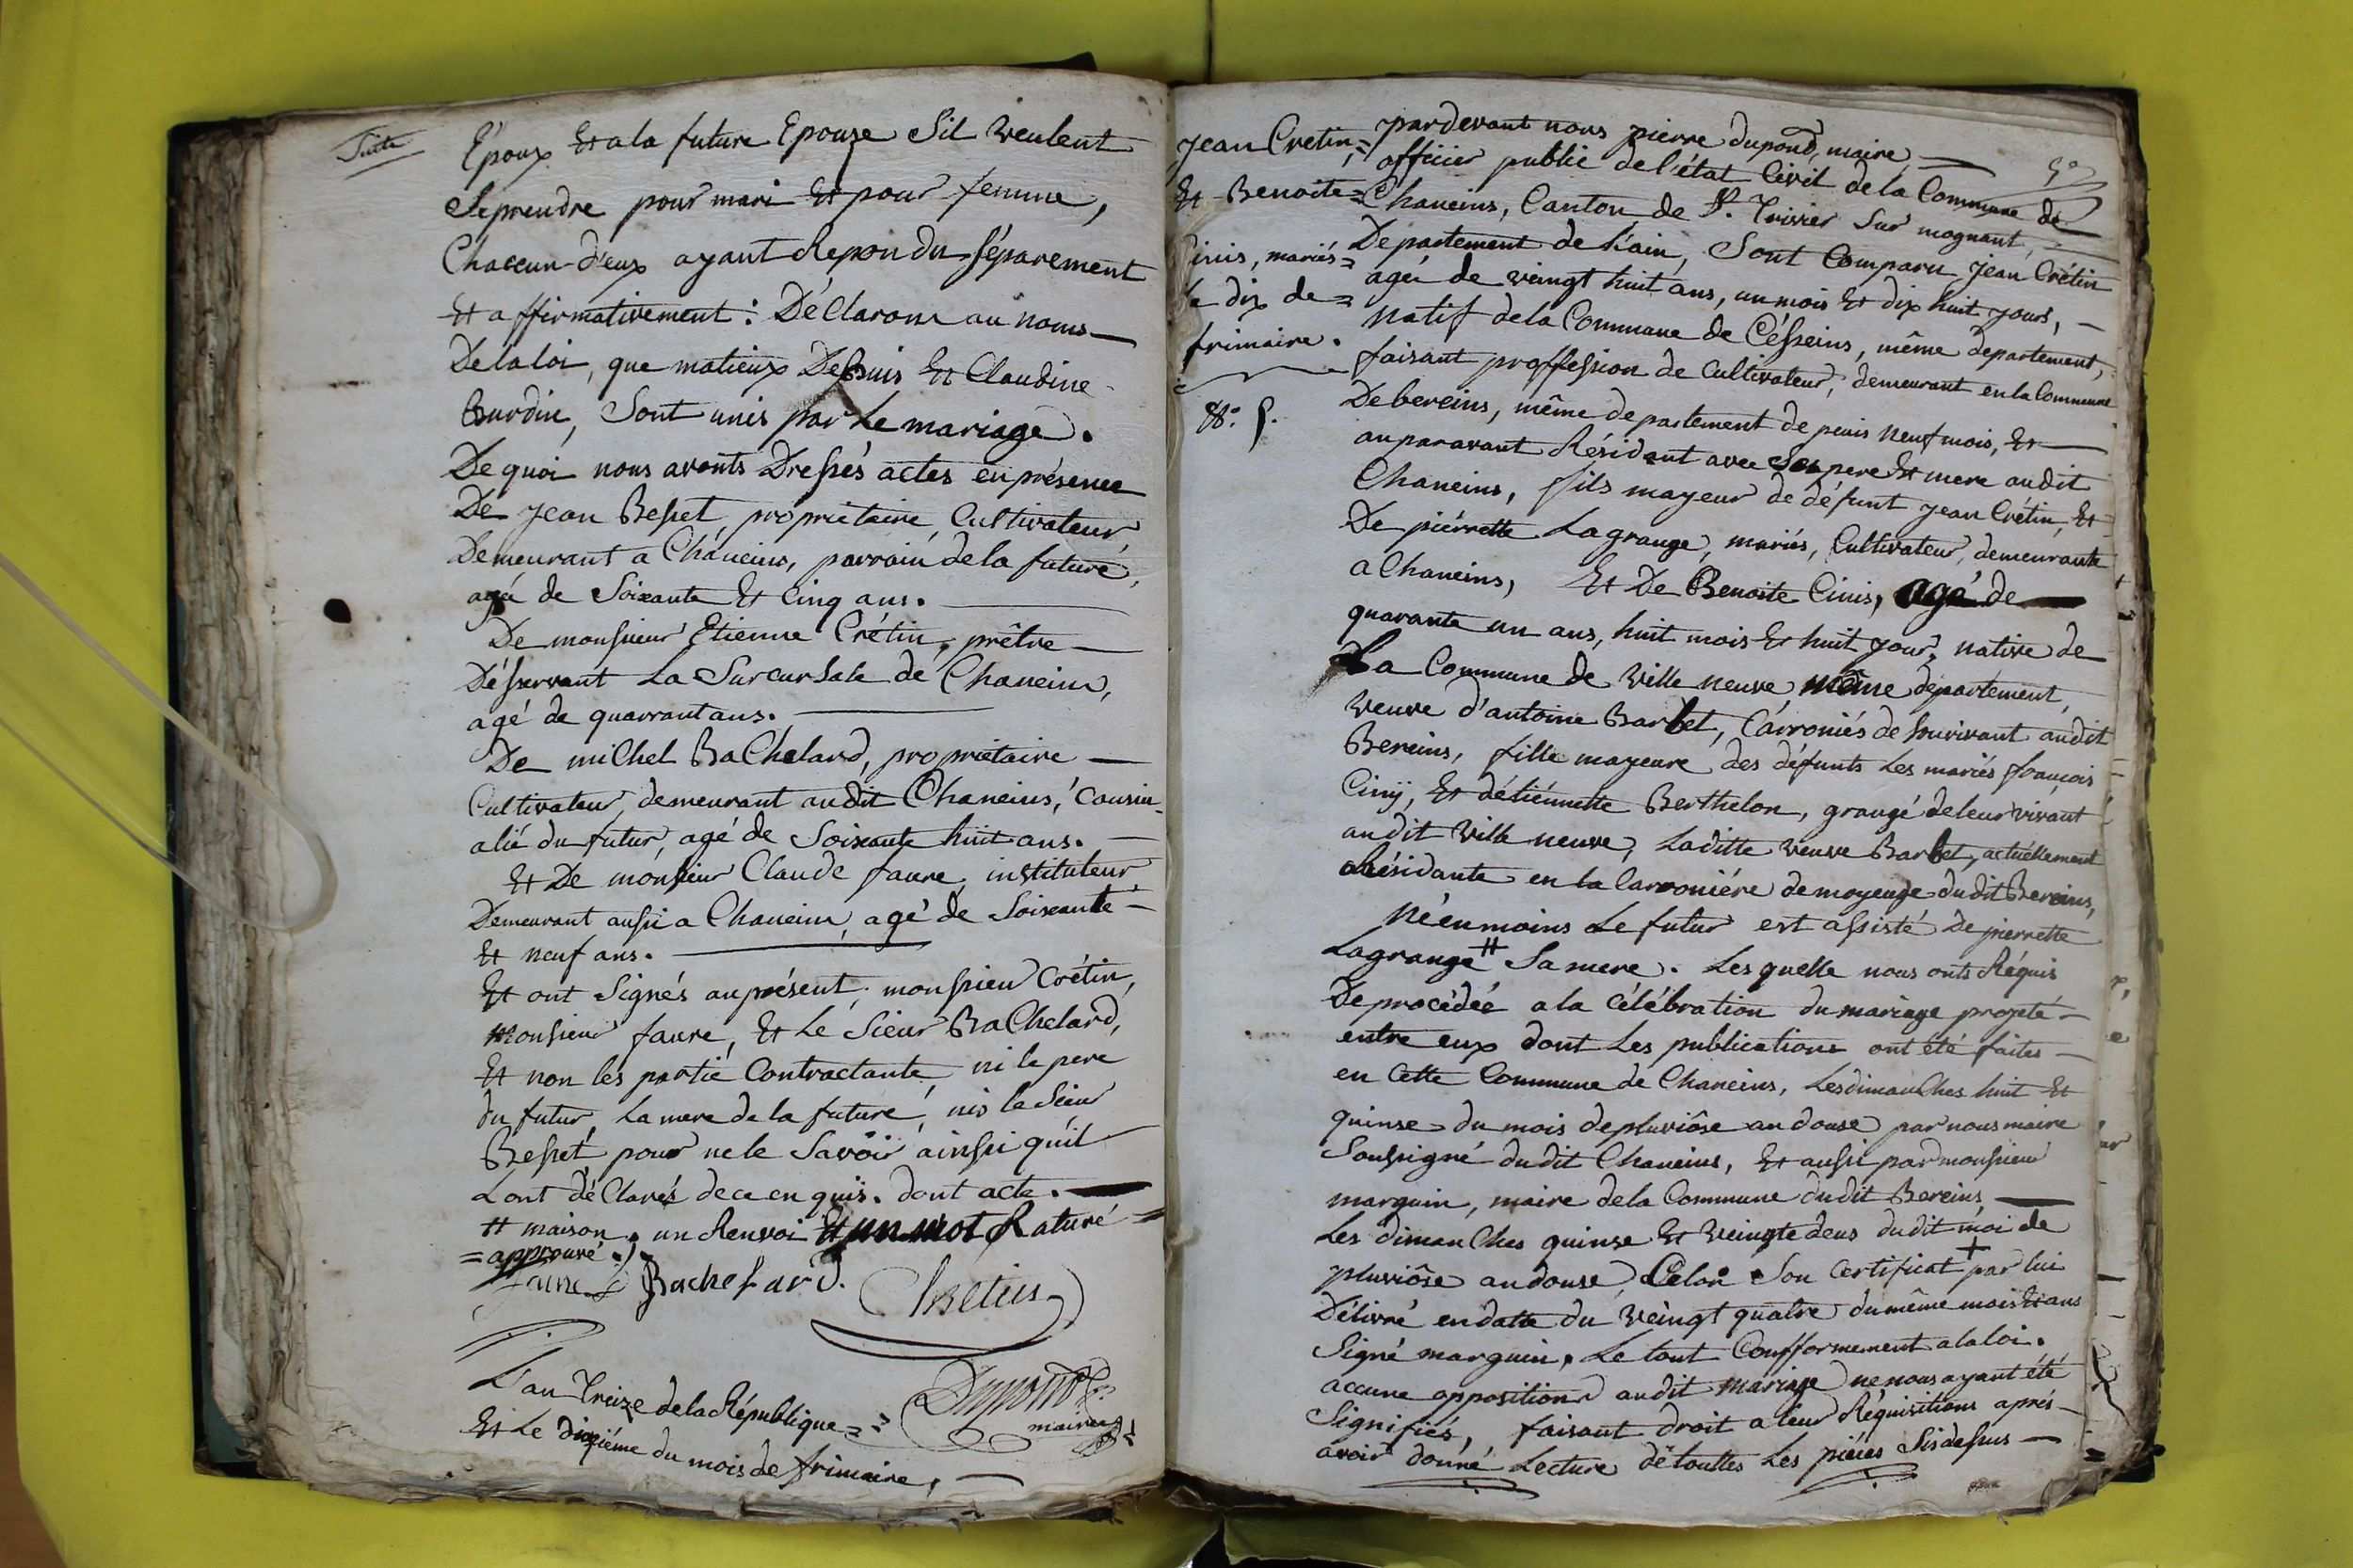 Suite
Epoux Et a la future Epouse Sil veulent
Se prendre pour mari Et pour femme,
Chaccun d'eux ayant Repondu Séparement
Et affirmativement : Déclarons au noms
De la loi, que matieux Depuis Et Claudine
Burdin, Sont unis par Le mariage.
De quoi nous avonts Dressés actes en présence
De Jean Besset, propriétaire, Cultivateur,
Demeurant a Chaneins, parrain de la future,
agé de Soixante Et Cinq ans.
De monsieur Etienne Crétin, prêtre
Désservant La Surcursale de Chaneins,
agé de quarrant ans.
De miChel BaChelard, propriétaire
Cultivateur, demeurant audit Chaneins, Cousin
alié du futur, agé de Soixante huit ans.
Et De monsieur Claude faure, instituteur,
Demeurant aussi a Chaneins, agé de Soixante
Et neuf ans.
Et ont Signés au présent, monsieur Crétin,
monsieur faure, Et Le Sieur BaChelard,
Et non les partie Contractante, ni le pere
du futur, La mere de la future, nis le Sieur
Besset pour ne le Savoir ainssi qu'il
Lont déClarés de ce enquis. dont acte.
# maison, un Renvoi Et un mot Raturé
= approuvé .).
faure Bachelard. Chretin
L'an Treize de la République =
Dupond
maire
Et Le dixiéme du mois de frimaire,
Jean Cretin,=
Et Benoite=
Cinis, mariés=
le dix de=
frimaire.
N.° 5.
5e
pardevant nous pierre dupond, maire
officier public de l'état Civil de la Commune de
Chaneins, Canton de St. Trivier Sur mognant,
Departement de L'ain, Sont Comparu Jean Crétin
agé de veingt huit ans, un mois Et dix huit jours,
Natif de la Commune de Césseins, même departement,
faisant proffession de Cultivateur, demeurant en la Commune
De bereins, même departement depeuis neuf mois, Et
auparavant Résidant avec Ses pere Et mere audit
Chaneins, fils mayeur de défunt Jean Crétin, Et
De piérrette Lagrange, mariés, Cultivateur, demeurante
a Chaneins, Et De Benoite Cinis, agé de
quarante un ans, huit mois Et huit jour, native de
La Commune de Ville neuve même département,
veuve d'antoine Barbet, Carroniés de Survivant audit
Bereins, fille mayeure des défunts Les mariés françois
Cinij, Et détiénnette Berthelon, grangé de leur vivant
audit Ville neuve, Laditte veuve Barbet, actuéllement
Résidante en la Carroniére de moyeuse dudit Bereins,
Néenmoins Le futur est assisté De pierrette
Lagrange # Sa mere. Lesquelle nous onts Réquis
De procédéé a la Célébration du mariage projeté
entre eux dont Les publications ont été faites
en Cette Commune de Chaneins, Les dimanChes huit Et
quinse du mois de pluviôse an douse par nous maire
Soussigné dudit Chaneins, Et aussi par monsieur
marguin, maire de la Commune dudit Bereins
Les dimanChes quinse Et veingtedeus dudit moi de
pluviôse an douse, Celon Son Certificat + par lui
Délivré en datte du veingt quatre du même mois Et ans
Signé marguin, Le tout Confformement a la loi.
accune opposition audit mariage ne nous ayant été
Signifiés, faisant droit a leur Réquisitions aprés
avoir donné Lecture de touttes Les piéces Sisdessus